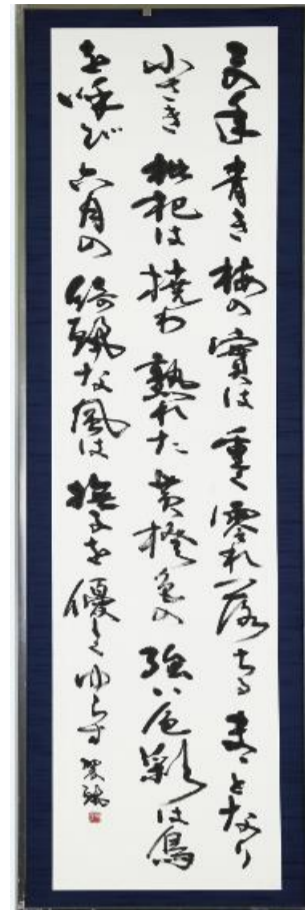 年青き梅の實は重く零れ落ちるまゝとなり
小さき枇杷は撓わ熟れた黄橙色の強い色彩は鳥
を呼び六月の綺麗な風は撫子を優しくゆらす